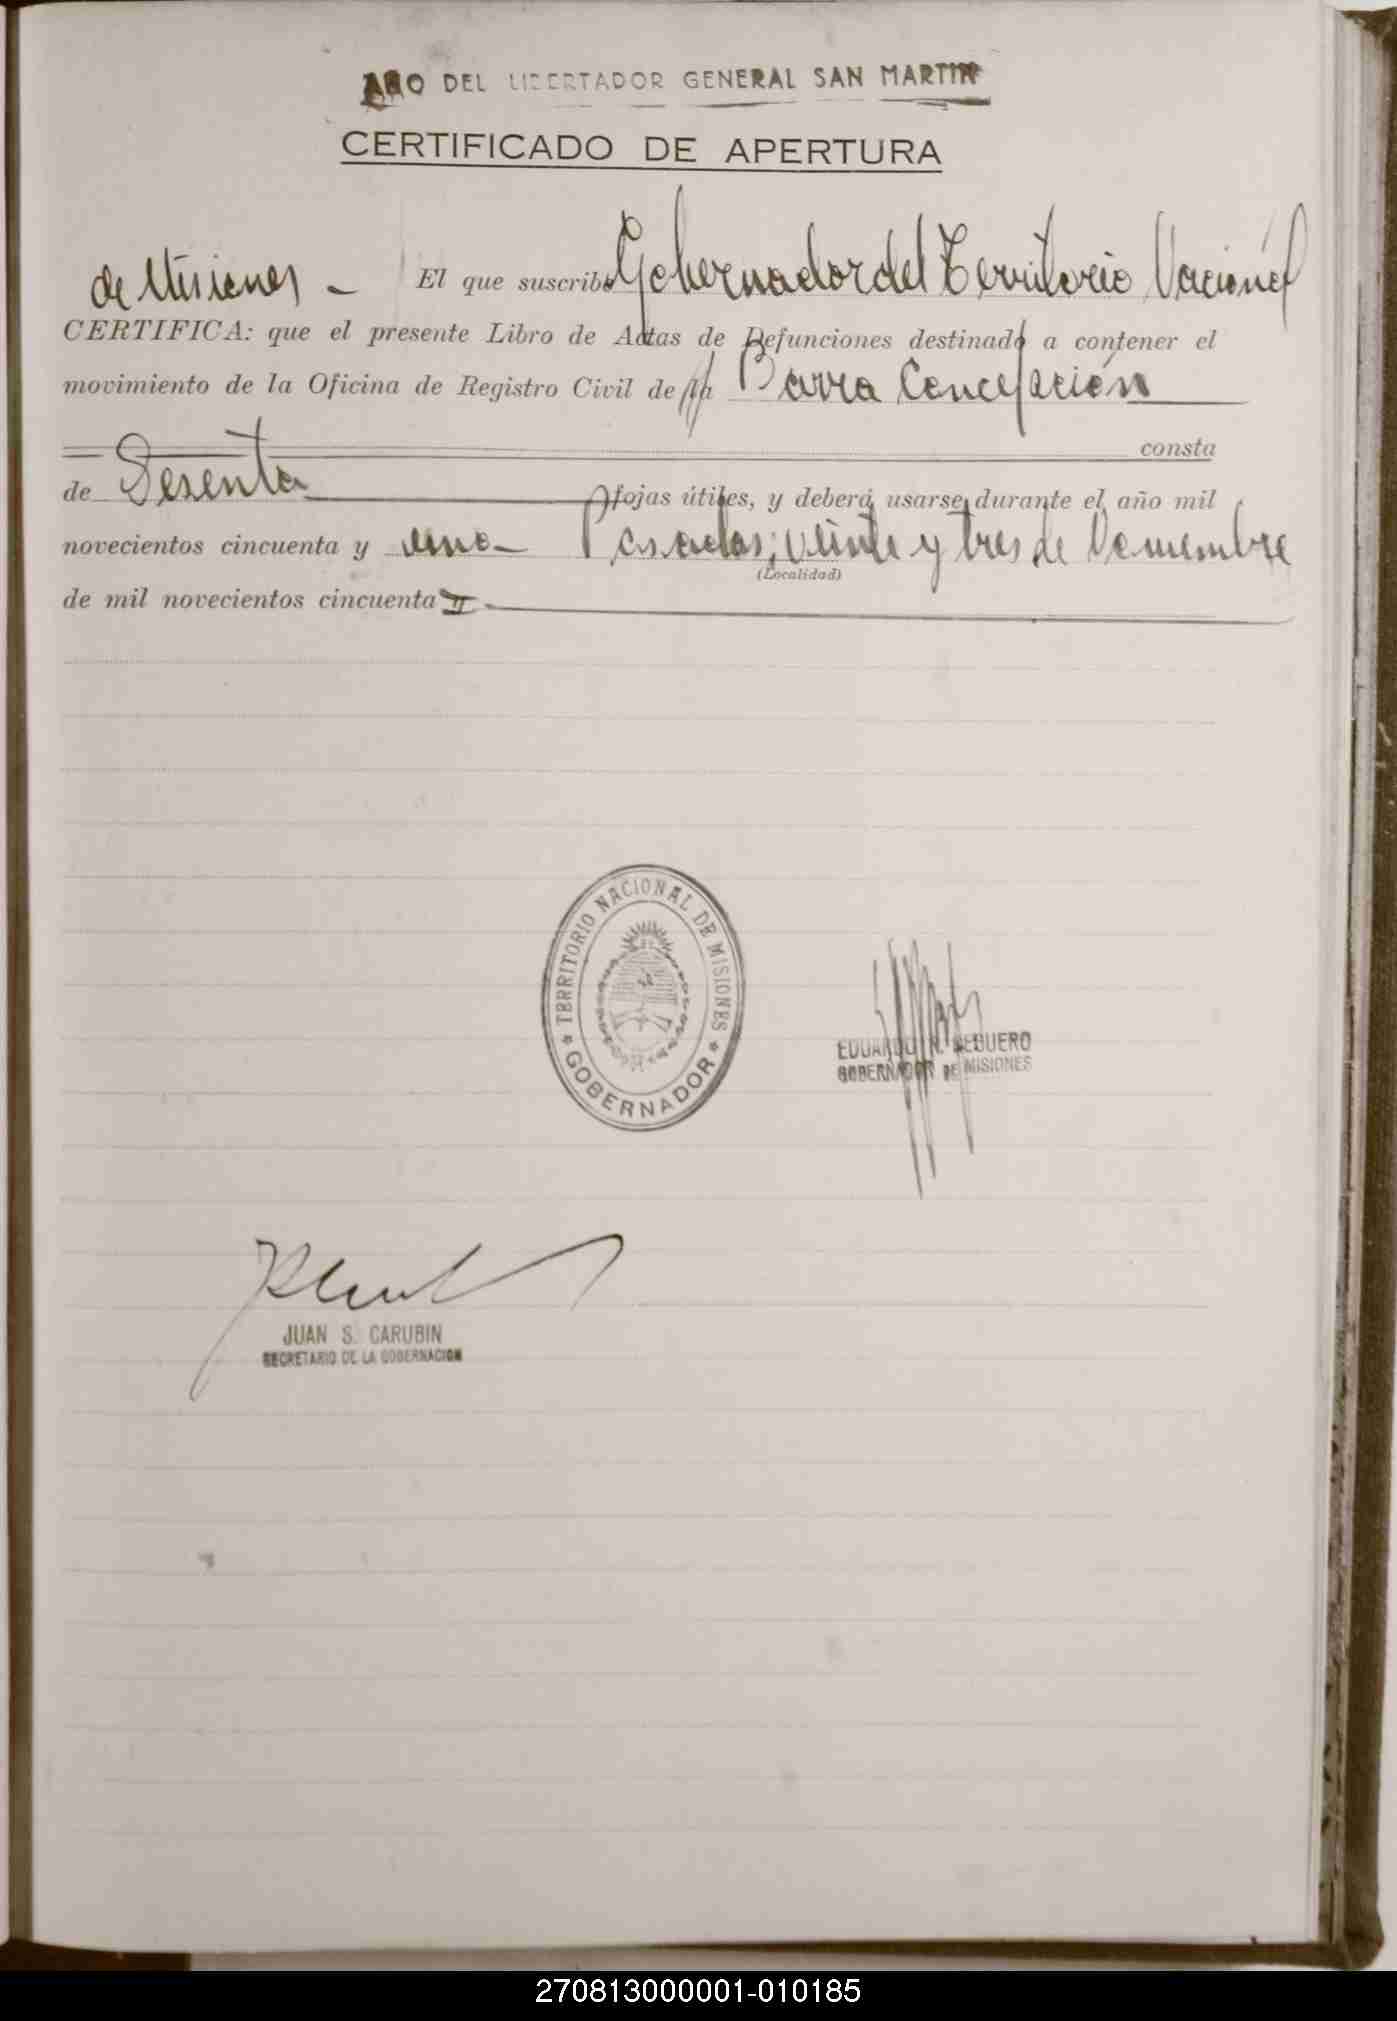 AÑO DEL LIBERTADOR GENERAL SAN MARTIN
CERTIFICADO DE APERTURA
de Misiones - El que suscribe Gobernador del Territorio Nacional
CERTIFICA: que el presente Libro de Actas de Defunciones destinado a contener el
movimiento de la Oficina de Registro Civil de Barra Concepción
consta
de Sesenta fojas útiles, y deberá usarse durante el año mil
novecientos cincuenta y uno - Posadas, veinte y tres de Noviembre
(Localidad)
de mil novecientos cincuenta
TERRITORIO NACIONAL DE MISIONES
* GOBERNADOR *
EDUARDO
GOBERNADOR DE MISIONES
JUAN S. CARUBIN
SECRETARIO DE LA GOBERNACION
270813000001-010185